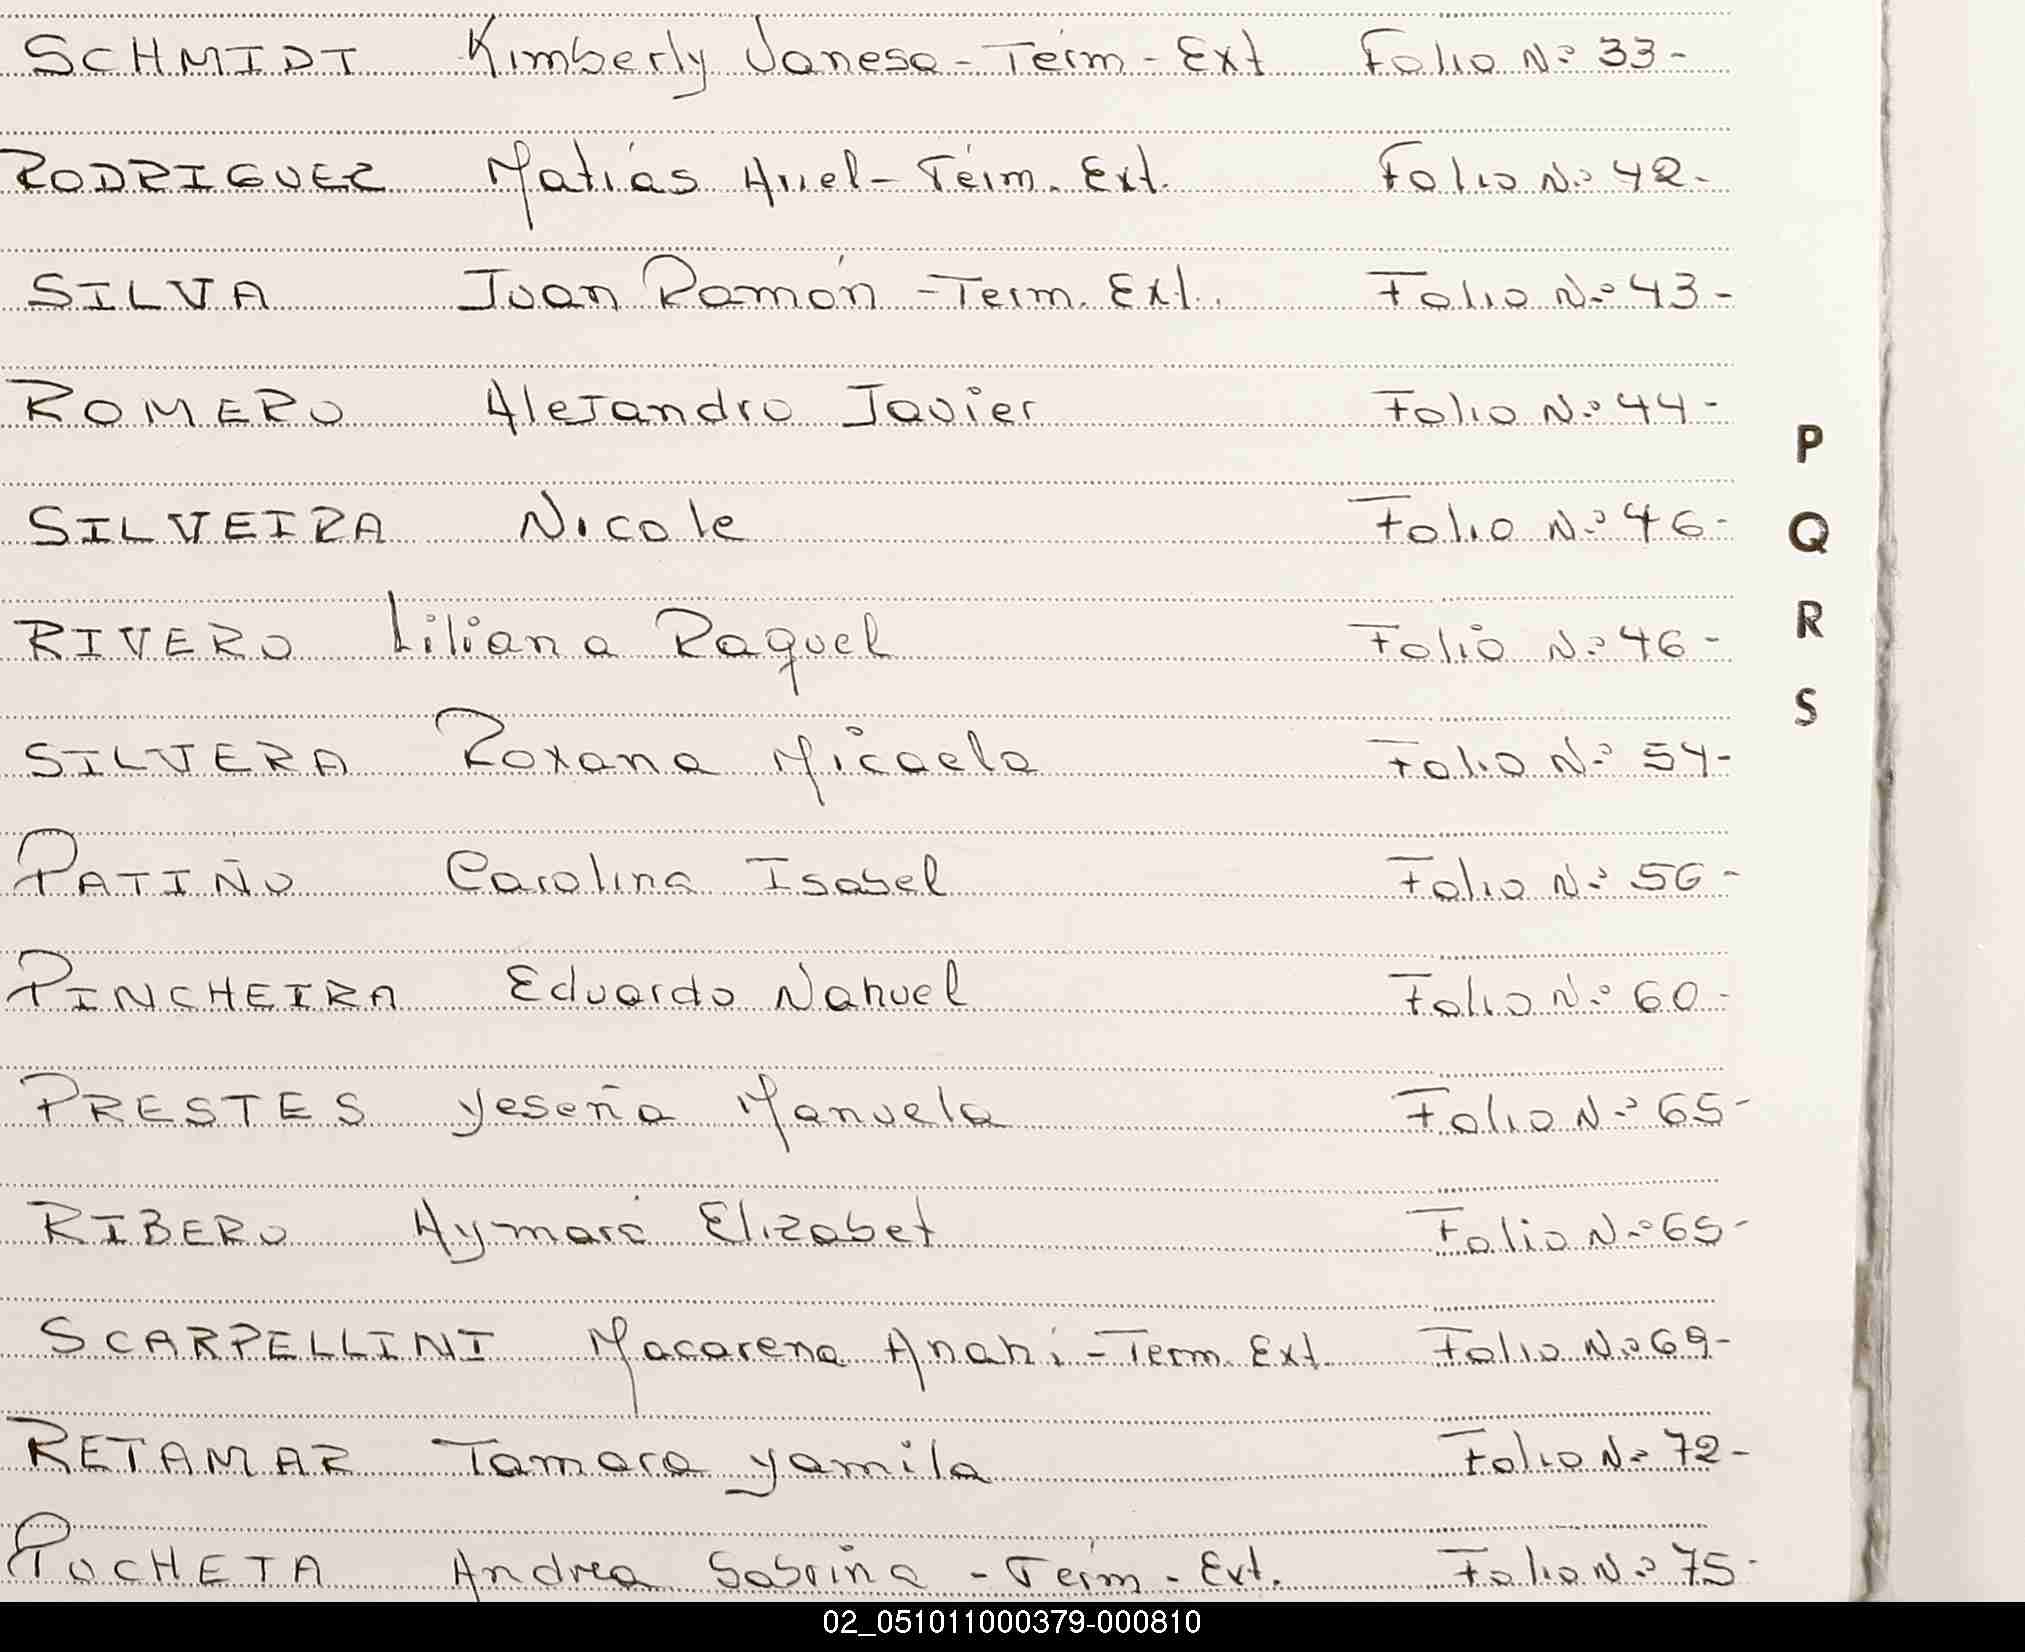 SCHMIDT Kimberly Vanesa - Térm - Ext Folio Nº 33 -
RODRIGUEZ Matías Ariel - Térm. Ext. Folio Nº 42 -
SILVA Juan Ramón - Term. Ext. Folio Nº 43 -
ROMERO Alejandro Javier Folio Nº 44 -
SILVEIRA Nicole Folio Nº 46 -
RIVERO Liliana Raquel Folio Nº 46 -
SILVERA Roxana Micaela Folio Nº 54 -
PATIÑO Carolina Isabel Folio Nº 56 -
PINCHEIRA Eduardo Nahuel Folio Nº 60 -
PRESTES Yeseña Manuela Folio Nº 65 -
RIBERO Aymará Elizabet Folio Nº 65 -
SCARPELLINI Macarena Anahí - Term. Ext. Folio Nº 69 -
RETAMAR Tamara Yamila Folio Nº 72 -
POCHETA Andrea Sabrina - Térm. Ext. Folio Nº 75 -
P
Q
R
S
02_051011000379-000810